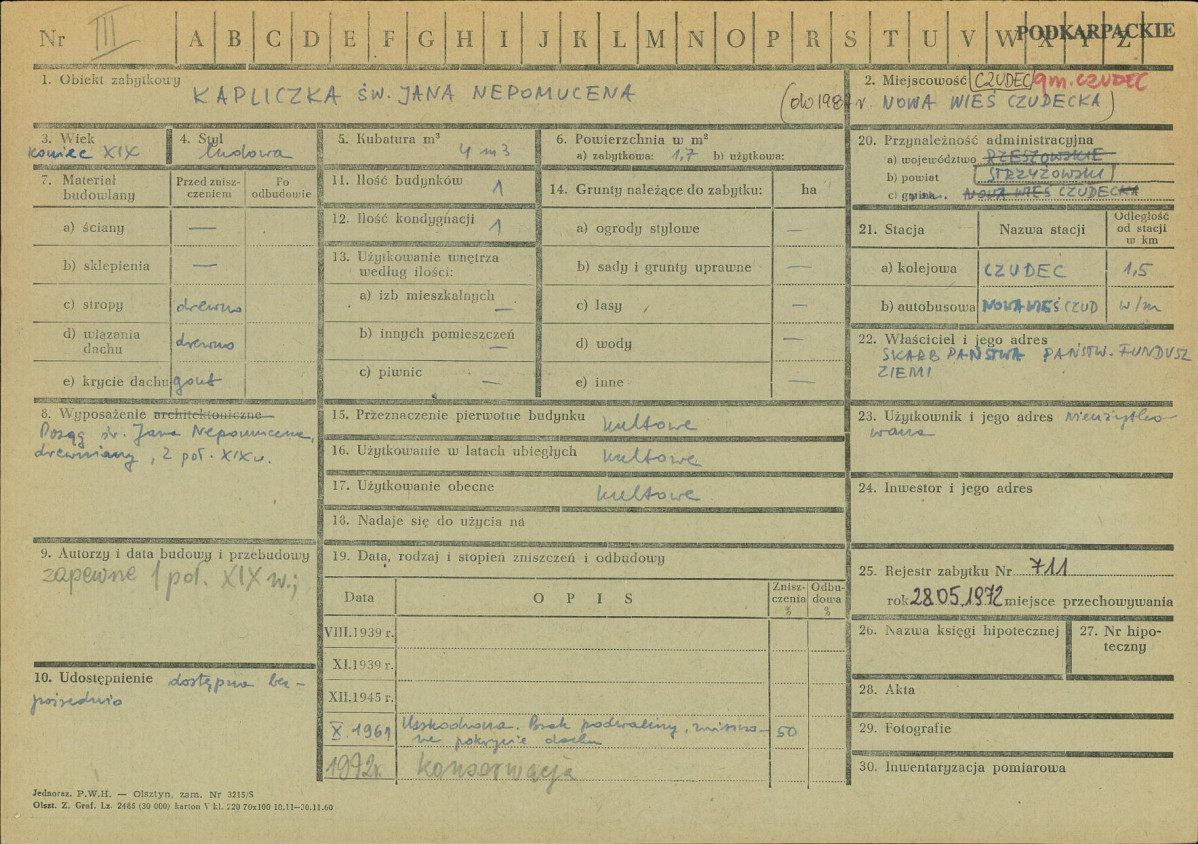 Nr III A B C D E F G H I J K L M N O P R S T U V W X Y Z PODKARPACKIE
1. Obiekt zabytkowy
KAPLICZKA ŚW. JANA NEPOMUCENA
2. Miejscowość CZUDEC gm. CZUDEC
(do 1987 r NOWA WIEŚ CZUDECKA)
3. Wiek
koniec XIX
4. Styl
ludowa
5. Kubatura m³
4 m3
6. Powierzchnia w m²
a) zabytkowa: 1,7 b) użytkowa:
7. Materiał budowlany
Przed zniszczeniem
Po odbudowie
a) ściany —
b) sklepienia —
c) stropy drewno
d) wiązania dachu drewno
e) krycie dachu gont
8. Wyposażenie architektoniczne
Posąg św. Jana Nepomucena,
drewniany, 2 poł. XIX w.
9. Autorzy i data budowy i przebudowy
zapewne 1 poł. XIX w.;
10. Udostępnienie dostępna bez-
pośrednio
11. Ilość budynków 1
12. Ilość kondygnacji 1
13. Użytkowanie wnętrza
według ilości:
a) izb mieszkalnych —
b) innych pomieszczeń —
c) piwnic —
14. Grunty należące do zabytku: ha
a) ogrody stylowe —
b) sady i grunty uprawne —
c) lasy —
d) wody —
e) inne —
15. Przeznaczenie pierwotne budynku kultowe
16. Użytkowanie w latach ubiegłych kultowe
17. Użytkowanie obecne kultowe
18. Nadaje się do użycia na
19. Data, rodzaj i stopień zniszczeń i odbudowy
Data
O P I S
Zniszczenia %
Odbudowa %
VIII.1939 r.
XI.1939 r.
XII.1945 r.
X. 1961 Uszkodzona. Brak podwaliny, zniszczo-
ne pokrycie dachu 50
1992r. konserwacja
20. Przynależność administracyjna
a) województwo RZESZOWSKIE
b) powiat STRZYŻOWSKI
c) gmina NOWA WIEŚ CZUDECKA
21. Stacja
Nazwa stacji
Odległość od stacji w km
a) kolejowa CZUDEC 1,5
b) autobusowa NOWA WIEŚ CZUD w/m
22. Właściciel i jego adres
SKARB PAŃSTWA PAŃSTW. FUNDUSZ
ZIEMI
23. Użytkownik i jego adres Nieużytko-
wana
24. Inwestor i jego adres
25. Rejestr zabytku Nr 711
rok 28.05.1972 miejsce przechowywania
26. Nazwa księgi hipotecznej
27. Nr hipo-
teczny
28. Akta
29. Fotografie
30. Inwentaryzacja pomiarowa
Jednoraz. P.W.H. — Olsztyn, zam. Nr 3215/S
Olszt. Z. Graf. Lz. 2485 (30 000) karton V kl. 220 70x100 10.11—30.11.60